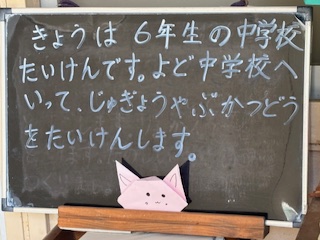 きょうは６年生の中学校
たいけんです。よど中学校へ
いって、じゅぎょうやぶかつどう
をたいけんします。